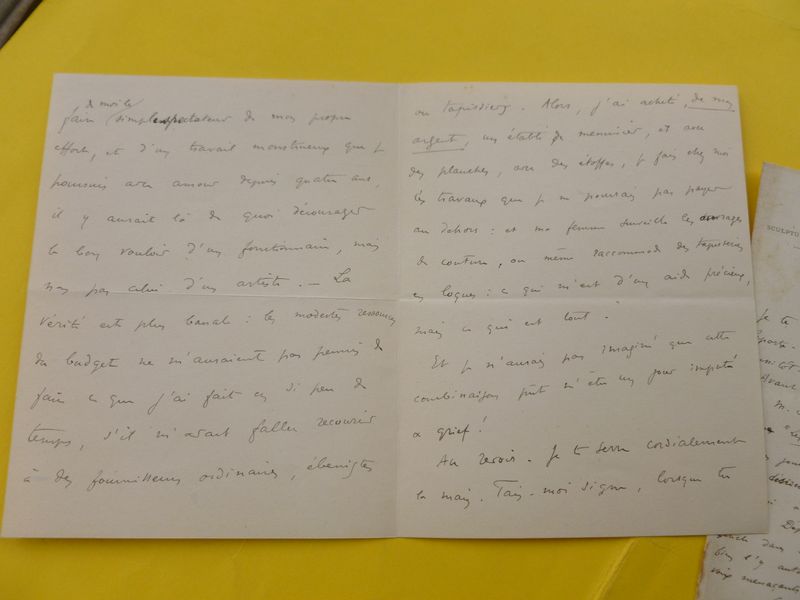 de moi le
faire (simple spectateur de mon propre
effort, et d'un travail monstrueux que je
poursuis avec amour depuis quatre ans,
il y aurait là de quoi décourager
le bon vouloir d'un fonctionnaire, mais
non pas celui d'un artiste. — La
vérité est plus banale : les modestes ressources
du budget ne m'auraient pas permis de
faire ce que j'ai fait en si peu de
temps, s'il m'avait fallu recourir
à des fournisseurs ordinaires, ébénistes
ou tapissiers. Alors, j'ai acheté, de mon
argent, un établi de menuisier, et avec
des planches, avec des étoffes, je fais chez moi
les travaux que je ne pourrais pas payer
au dehors : et ma femme surveille les ouvrages
de couture, ou même raccommode des tapisseries
en loques : ce qui m'est d'un aide précieux,
mais ce qui est tout !
Et je n'aurais pas imaginé que cette
combinaison pût m'être un jour imputée
à grief !
Au revoir. Je te serre cordialement
la main. Fais-moi signe, lorsque tu
SCULPTU
Je te
Avant
m.
bien s'y
voix menaçante